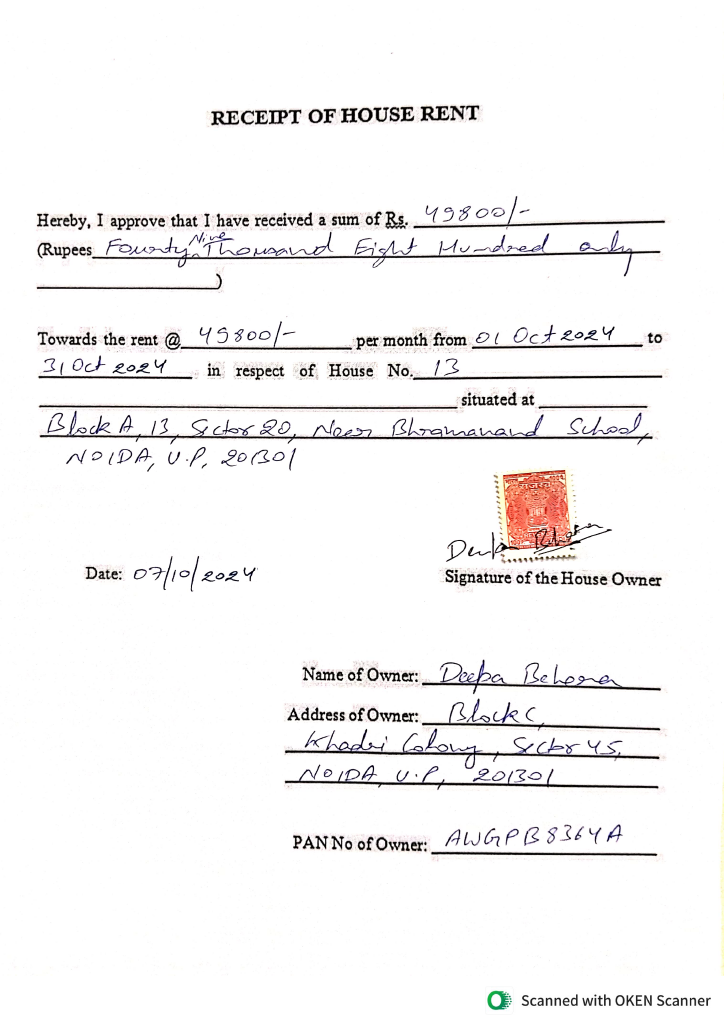 RECEIPT OF HOUSE RENT
Hereby, I approve that I have received a sum of Rs. 49800/-
(Rupees Fourty Nine Thousand Eight Hundred only
)
Towards the rent @ 49800/- per month from 01 Oct 2024 to
31 Oct 2024 in respect of House No. 13
situated at
Block A, 13, Sector 20, Near Bhramanand School,
NOIDA, U.P, 201301
Deepa Behora
Date: 07/10/2024
Signature of the House Owner
Name of Owner: Deepa Behora
Address of Owner: Block C,
Khadri Colony, Sector 45,
NOIDA, U.P, 201301
PAN No of Owner: AWGPB8364A
Scanned with OKEN Scanner